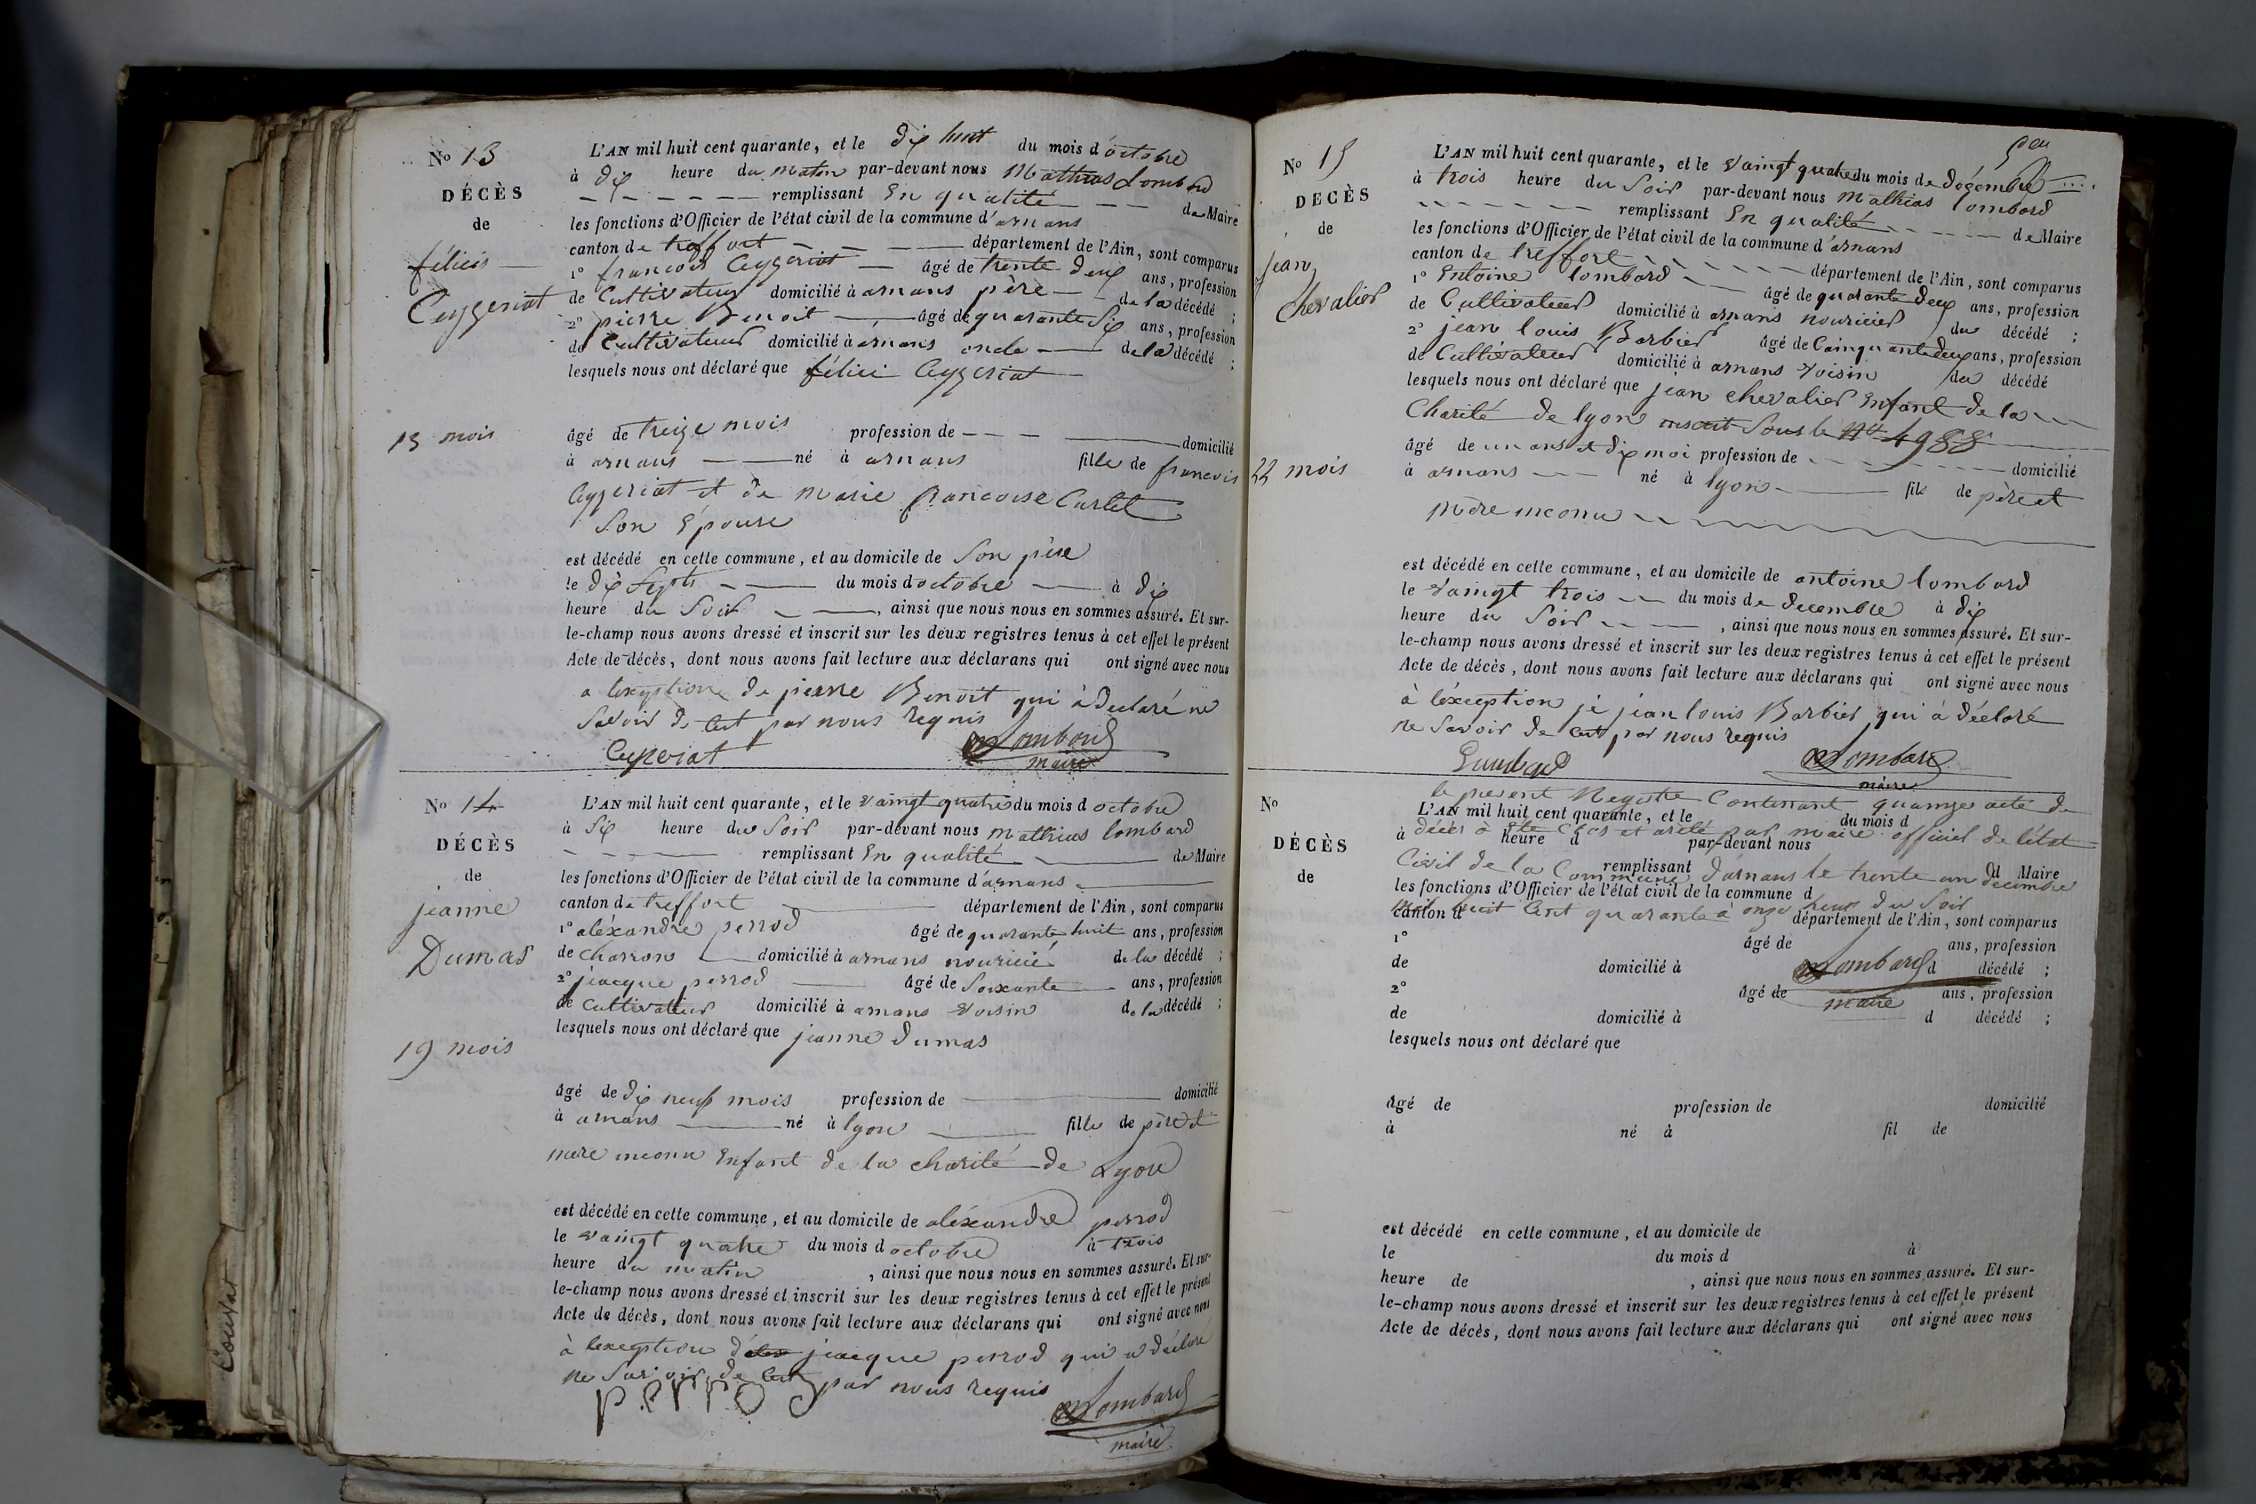 No 13
DÉCÈS
de
félicie
Ceyzeriat
13 mois
L'AN mil huit cent quarante, et le dix huit du mois d'octobre
à dix heure du matin par-devant nous Mathias Lombard
remplissant En qualité de Maire
les fonctions d'Officier de l'état civil de la commune d'arnans
canton de treffort département de l'Ain, sont comparus
1º francois Ceyzeriat âgé de trente deux ans, profession
de Cultivateur domicilié à arnans père de la décédé ;
2º pierre Benoit âgé de quarante six ans, profession
de Cultivateur domicilié à arnans oncle de la décédé ;
lesquels nous ont déclaré que félici Ceyzeriat
âgé de treize mois profession de domicilié
à arnans né à arnans fille de francois
Ceyzeriat et de marie francoise Curtet
Son Epouse
est décédé en cette commune, et au domicile de Son père
le dix Sept du mois d octobre à dix
heure du Soir , ainsi que nous nous en sommes assuré. Et sur-
le-champ nous avons dressé et inscrit sur les deux registres tenus à cet effet le présent
Acte de décès, dont nous avons fait lecture aux déclarans qui ont signé avec nous
a lexeptione de pierre Benoit qui à declaré ne
Savoir de cest par nous requis
Ceyzeriat Lombard
maire
No 14
DÉCÈS
de
jeanne
Dumas
19 mois
L'AN mil huit cent quarante, et le vaingt quatre du mois d octobre
à Six heure du Soir par-devant nous mathias lombard
remplissant En qualité de Maire
les fonctions d'Officier de l'état civil de la commune d'arnans
canton de treffort département de l'Ain, sont comparus
1º aléxandre perrod âgé de quarante huit ans, profession
de charron domicilié à arnans nouricié de la décédé ;
2º jiacque perrod âgé de Soixante ans, profession
de Cultivateur domicilié à arnans voisin de la décédé ;
lesquels nous ont déclaré que jeanne dumas
âgé de dix neuf mois profession de domicilié
à arnans né à lyon fille de père et
mère inconu Enfant de la charité de Lyon
est décédé en cette commune, et au domicile de aléxandre perrod
le vaingt quatre du mois d octobre à trois
heure du matin , ainsi que nous nous en sommes assuré. Et sur-
le-champ nous avons dressé et inscrit sur les deux registres tenus à cet effet le présent
Acte de décès, dont nous avons fait lecture aux déclarans qui ont signé avec nous
à lexeption jiacque perrod qui a déclaré
ne Savoir de cest par nous requis
perrod Lombard
maire
No 15
DÉCÈS
de
jean
chevalier
22 mois
L'AN mil huit cent quarante, et le vaingt quatre du mois de décembre
à trois heure du Soir par-devant nous mathias lombard
remplissant En qualité de Maire
les fonctions d'Officier de l'état civil de la commune d'arnans
canton de treffort département de l'Ain, sont comparus
1º Entoine lombard âgé de quarante deux ans, profession
de Cultivateur domicilié à arnans nouricier du décédé ;
2º jean louis Barbier âgé de Cainquante deux ans, profession
de Cultivateur domicilié à arnans voisin du décédé
lesquels nous ont déclaré que jean chevalier Enfant de la
Charité de lyon inscrit Sous le Nº 4988
âgé de un ans et dix moi profession de domicilié
à arnans né à lyon fils de père et
mère inconu
est décédé en cette commune, et au domicile de antoine lombard
le vaingt trois du mois de decembre à dix
heure du Soir , ainsi que nous nous en sommes assuré. Et sur-
le-champ nous avons dressé et inscrit sur les deux registres tenus à cet effet le présent
Acte de décès, dont nous avons fait lecture aux déclarans qui ont signé avec nous
à léxception je jean louis Barbier qui à déclaré
ne Savoir de cest par nous requis
Lombard
maire
le present Registre Contenant quainze acte de
décès à été clos et arêté par maire officiel de létat
Civil de la Commune d'arnans le trente un decembre
mil huit cent quarante a onze heure du Soir
Lombard
maire
No
DÉCÈS
de
L'AN mil huit cent quarante, et le du mois d
à heure d par-devant nous
remplissant d Maire
les fonctions d'Officier de l'état civil de la commune d
canton d département de l'Ain, sont comparus
1º âgé de ans, profession
de domicilié à d décédé ;
2º âgé de ans, profession
de domicilié à d décédé ;
lesquels nous ont déclaré que
âgé de profession de domicilié
à né à fil de
est décédé en cette commune, et au domicile de
le du mois d à
heure de , ainsi que nous nous en sommes assuré. Et sur-
le-champ nous avons dressé et inscrit sur les deux registres tenus à cet effet le présent
Acte de décès, dont nous avons fait lecture aux déclarans qui ont signé avec nous